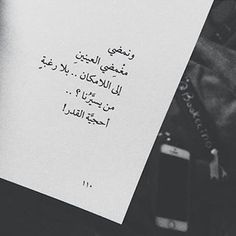 ونمضي
مغْمِضي العينينِ
إلى اللامكان .. بلا رغبةٍ
من يسيِّرُنا ؟ ..
أحجيَّة القدر!
١١٠